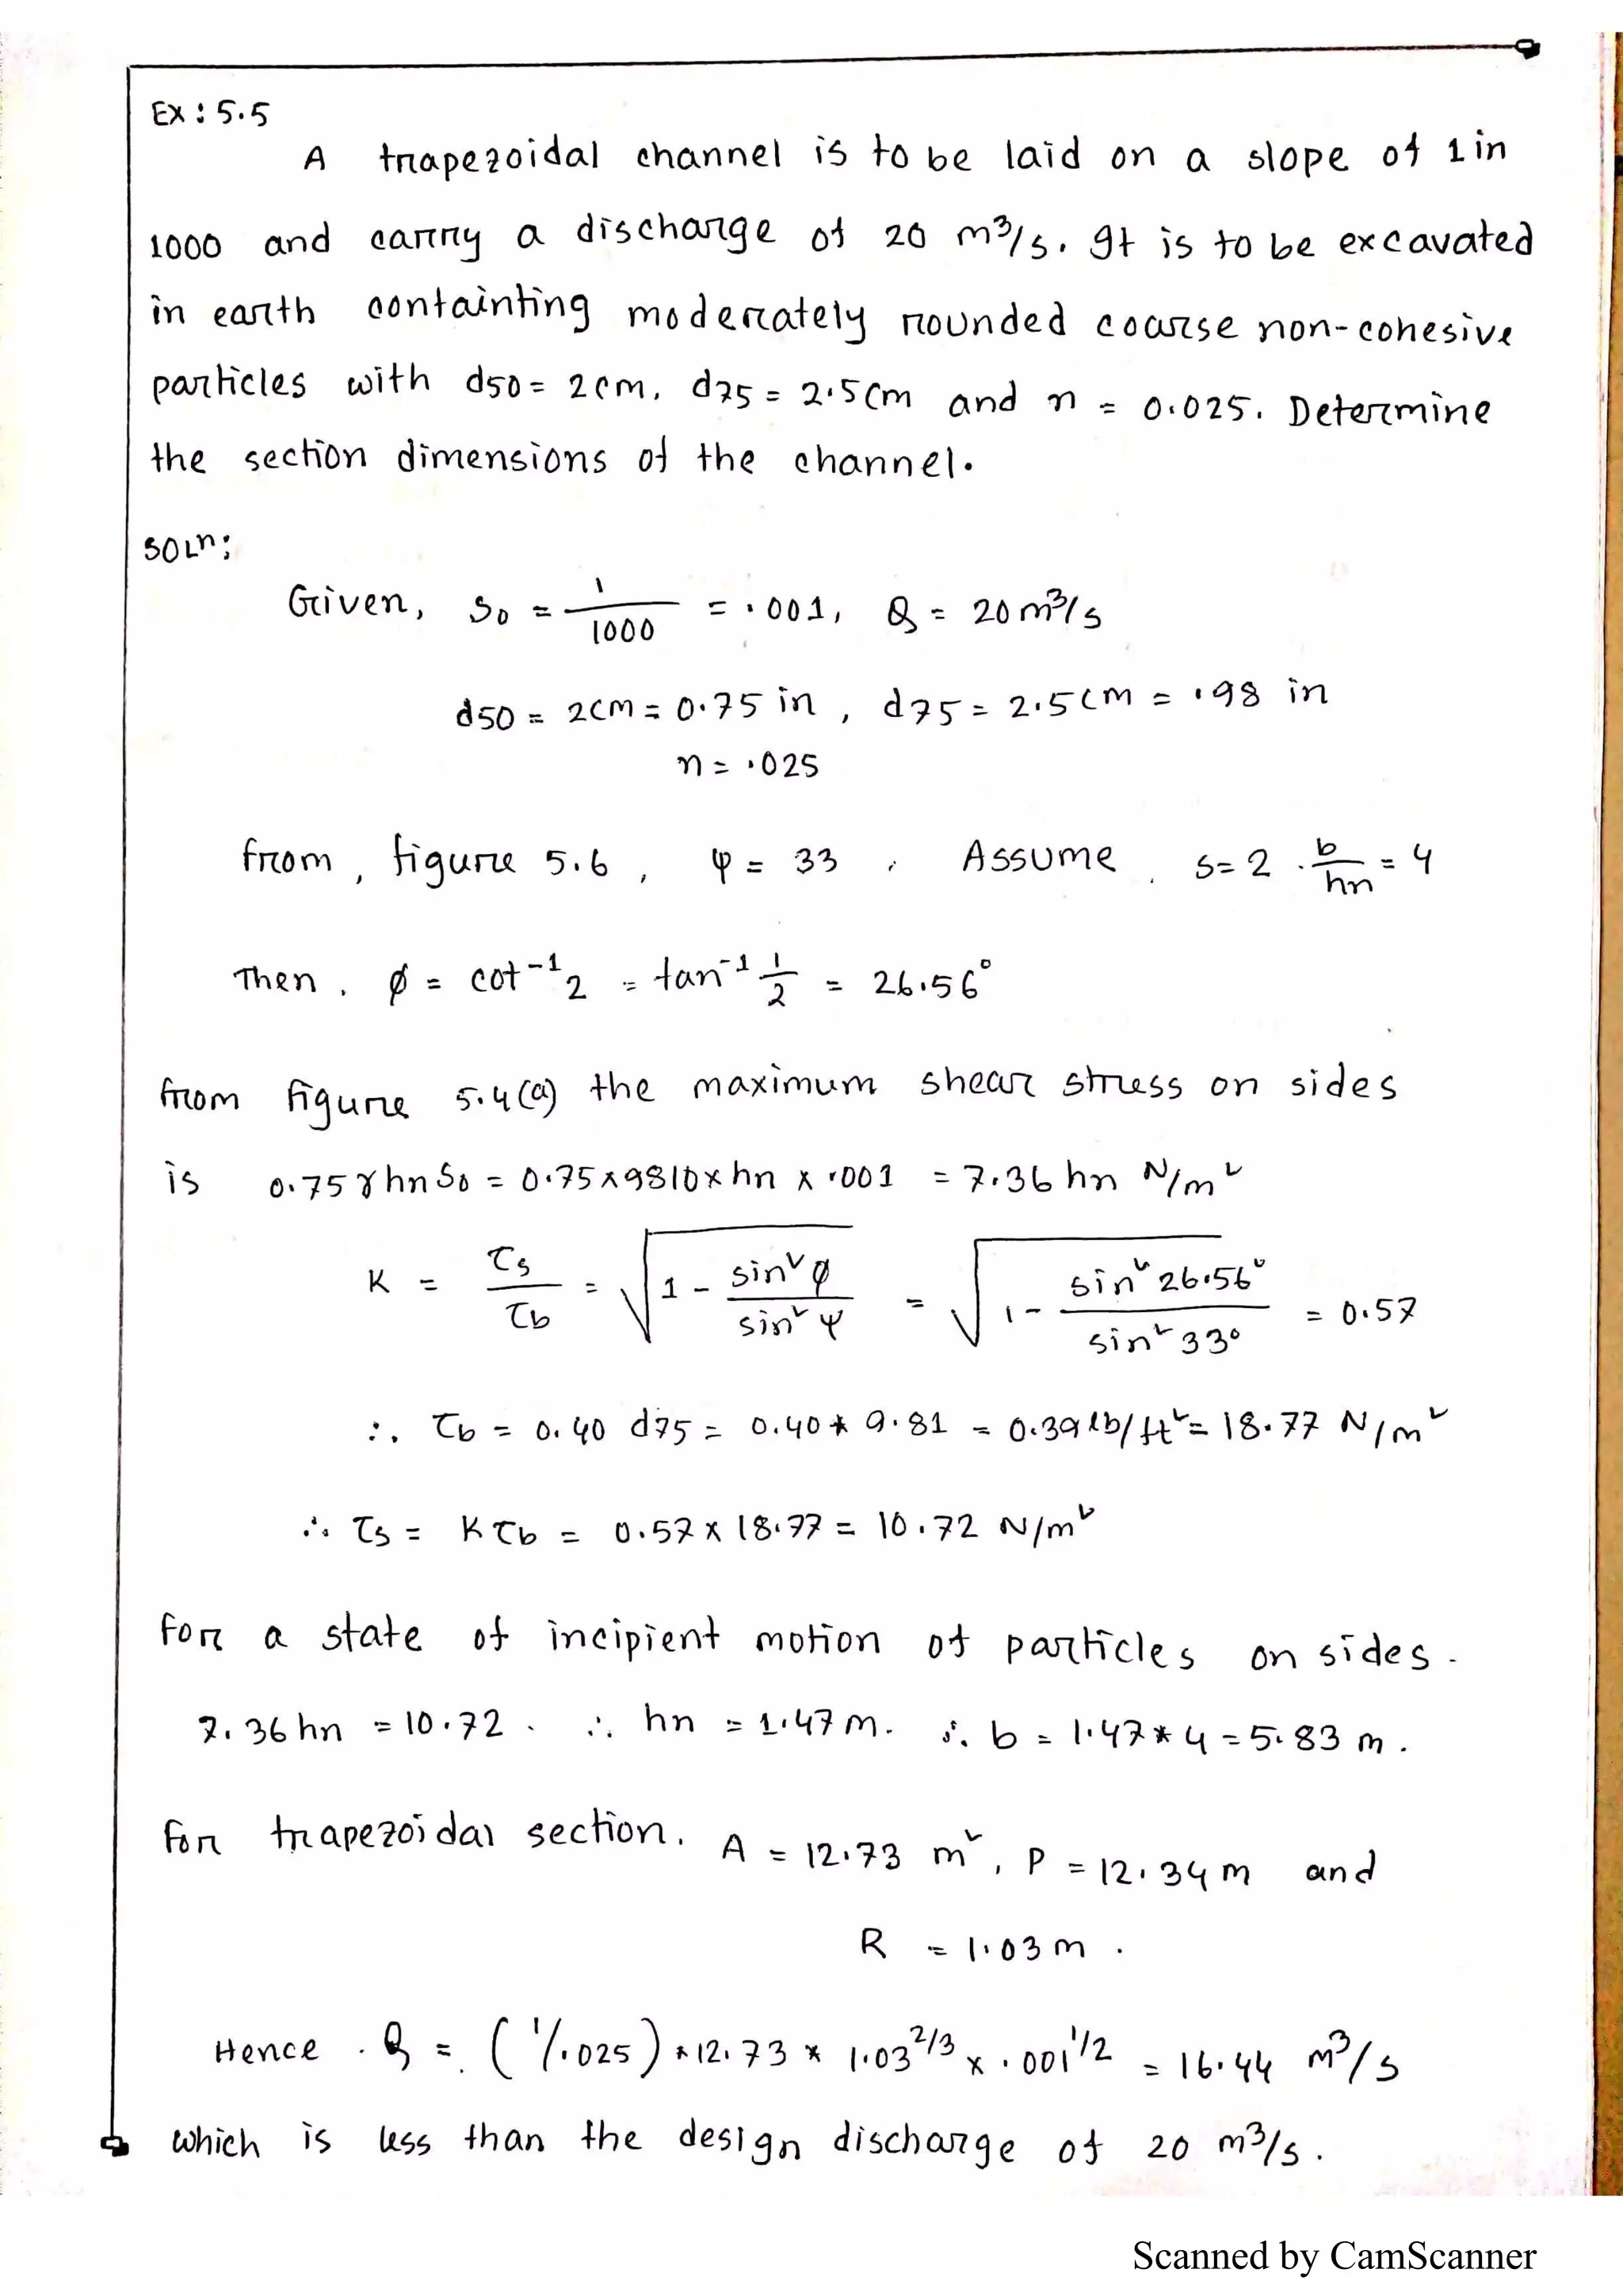 Ex : 5.5
A trapezoidal channel is to be laid on a slope of 1 in
1000 and carry a discharge of 20 m³/s. It is to be excavated
in earth containting moderately rounded coarse non-cohesive
particles with d50 = 2cm, d75 = 2.5cm and n = 0.025. Determine
the section dimensions of the channel.
SOLⁿ:
Given, S₀ = 1/1000 = .001, Q = 20 m³/s
d50 = 2cm = 0.75 in, d75 = 2.5cm = .98 in
n = .025
From, figure 5.6, ψ = 33, Assume, s = 2 . b/hn = 4
Then, ϕ = cot⁻¹2 = tan⁻¹ 1/2 = 26.56°
From figure 5.4(a) the maximum shear stress on sides
is 0.75 γ hn S₀ = 0.75 × 9810 × hn × .001 = 7.36 hn N/m²
K = τs/τb = √(1 - sin²ϕ/sin²ψ) = √(1 - sin²26.56°/sin²33°) = 0.57
∴ τb = 0.40 d75 = 0.40 * 9.81 = 0.39 lb/ft² = 18.77 N/m²
∴ τs = Kτb = 0.57 × 18.77 = 10.72 N/m²
For a state of incipient motion of particles on sides.
7.36 hn = 10.72. ∴ hn = 1.47 m. ∴ b = 1.47 * 4 = 5.83 m.
For trapezoidal section, A = 12.73 m², P = 12.34 m and
R = 1.03 m.
Hence, Q = (1/.025) * 12.73 * 1.03^2/3 × .001^1/2 = 16.44 m³/s
which is less than the design discharge of 20 m³/s.
Scanned by CamScanner